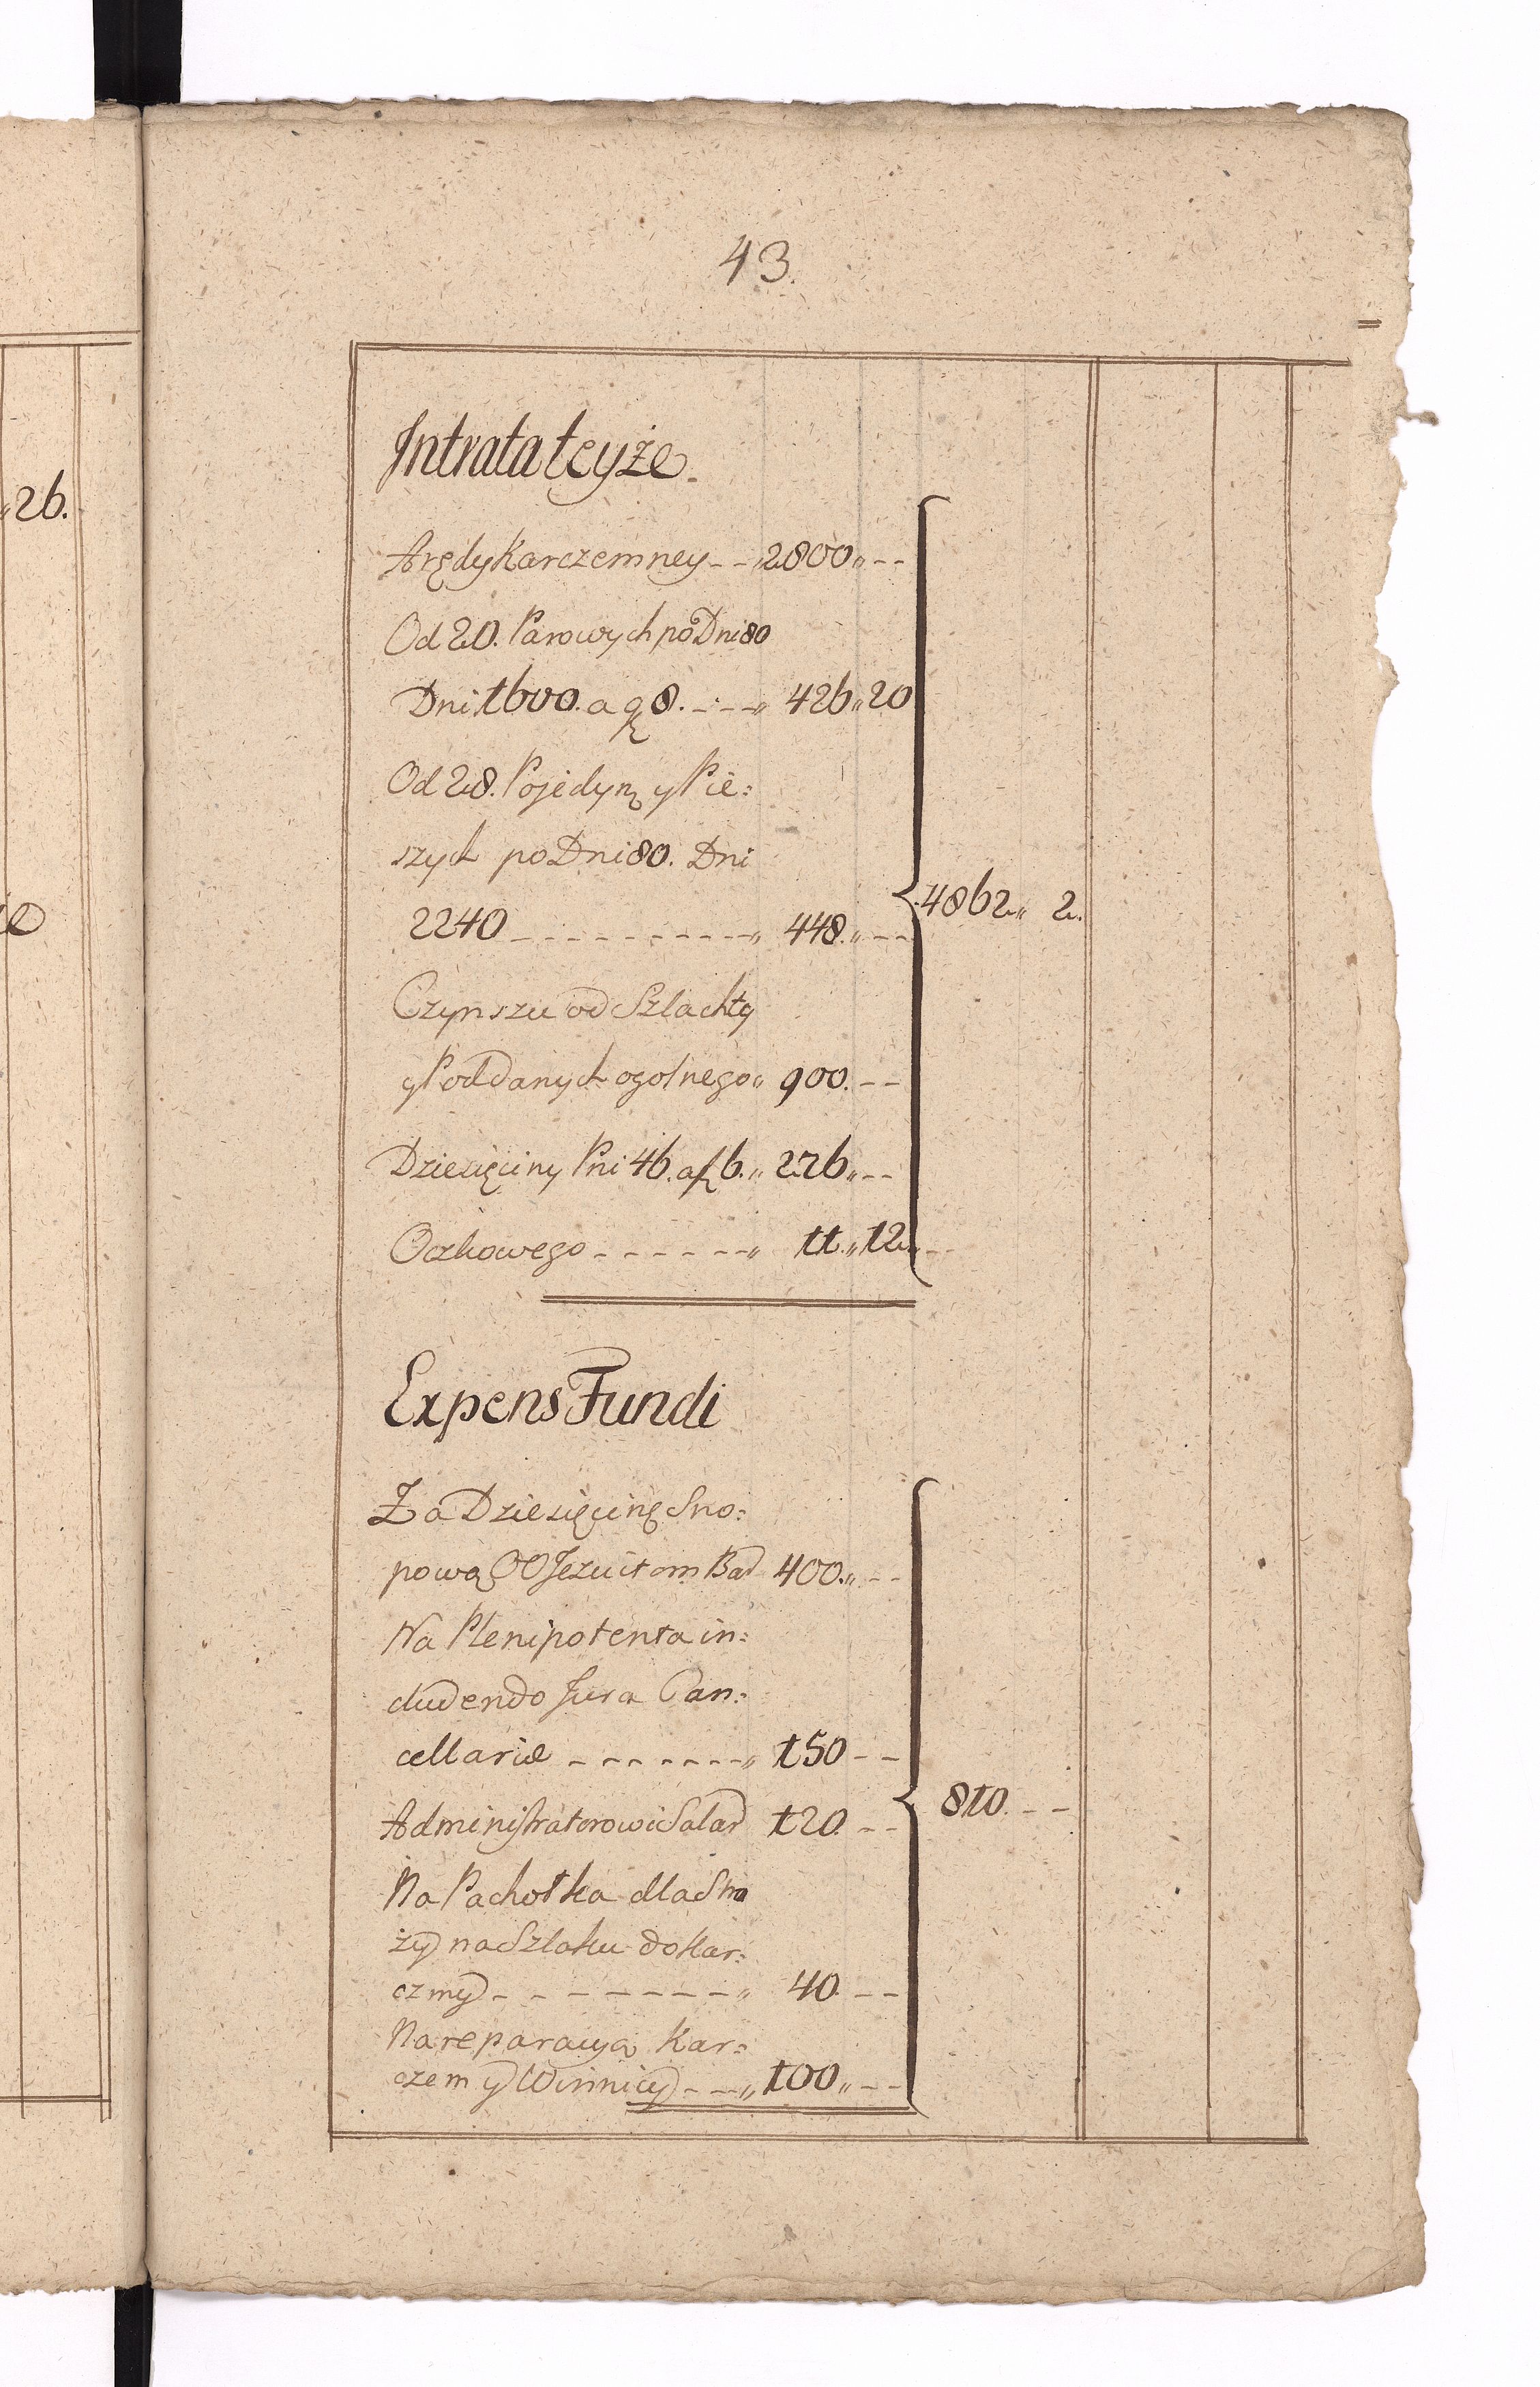 43.
26.
Intrata teyże
Arędy Karczemney -- „ 2800 „ --
Od 20. Parowych po Dni 80
Dni 1600. a g 8. --- „ 426 „ 20
Od 28. Pojedyn: y Pie:
szych po Dni 80. Dni
2240 ---------- „ 448. „ --
4862 „ 2.
Czynszu od Szlachty
y Poddanych ogolnego „ 900. --
Dziesięciny Pni 46. a f 6. „ 276 „ --
Oczkowego ------ „ 11. „ 12. „ --
Expens Fundi
Za Dziesięcinę Sno:
pową OO Jezuitom Bad 400. „ --
Na Plenipotenta in:
cludendo Jura Can:
cellariæ ------- „ 150 --
810. --
Administratorowi Salar 120. --
Na Pachołka dla
ży na Szlaku do Kar:
czmy ------- „ 40. --
Na reparacyą Kar:
czem y Winnicy --- „ 100 „ --